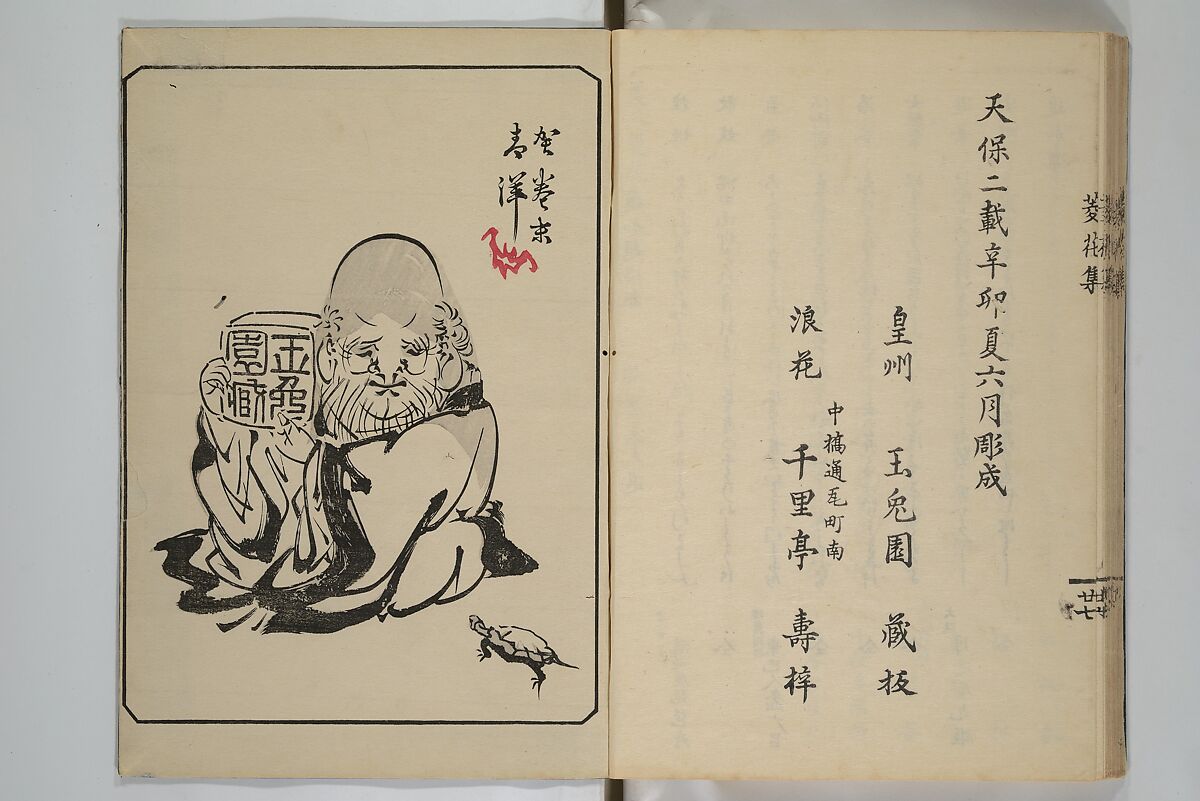 菱花集
廿七
天保二載辛卯夏六月彫成
皇州 玉兎園 蔵板
中橋通瓦町南
浪花 千里亭 壽梓
賀巻末
青洋
玉兎
園蔵